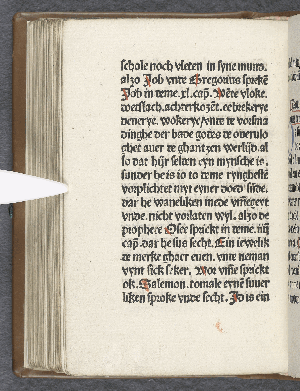 schole noch vleten in syne muni.
alzo Job vnte Gregorius spreken
Job in teme .xl. cap. Wente vloke.
achterkozent. eebrekerye
deuerye. wokerye vnte te vorsma
dinghe der bade gotes te oberulo
ghet auer te ghantzen werlyd. al
so dat hijr selten eyn mynsche is.
sunder he is io to teme rynghesten
vorplichtet myt eyner doed sude.
dar he waneliken mede vmmegeyt
vnde. nicht vorlaten wyl. alzo de
prophete Osee sprickt in teme .iiij
cap. dar he sus secht. Ein iewelik
te merke ghaer euen. vnte neman
vynt sick seker. Wor vmme sprickt
ok. Salemon. to male eynen suuer
liken sproke vnde secht. Id is ein